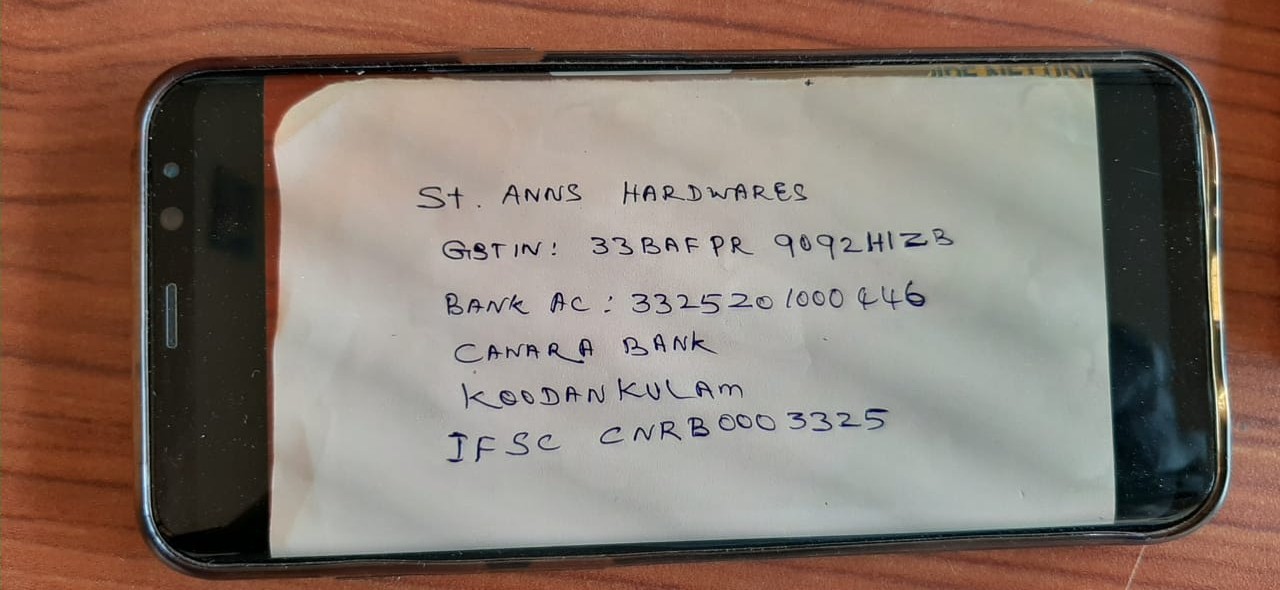 St. ANNS HARDWARES
GSTIN: 33BAFPR 9092H1ZB
BANK AC: 3325201000446
CANARA BANK
KOODANKULAM
IFSC CNRB0003325